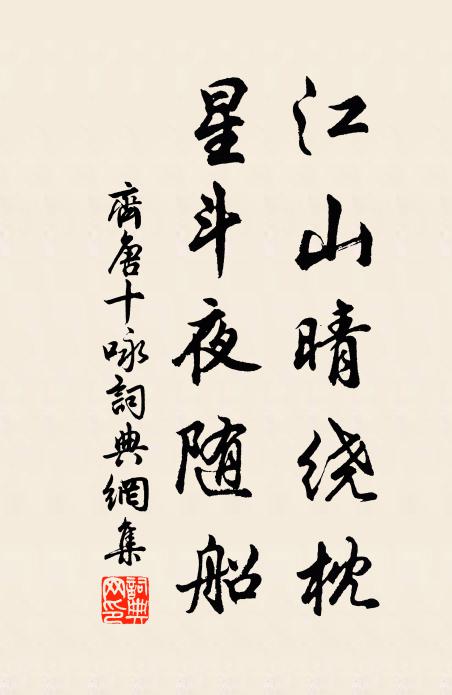 江山晴绕枕
星斗夜随船
齊唐十咏詞典網集
詞典網印